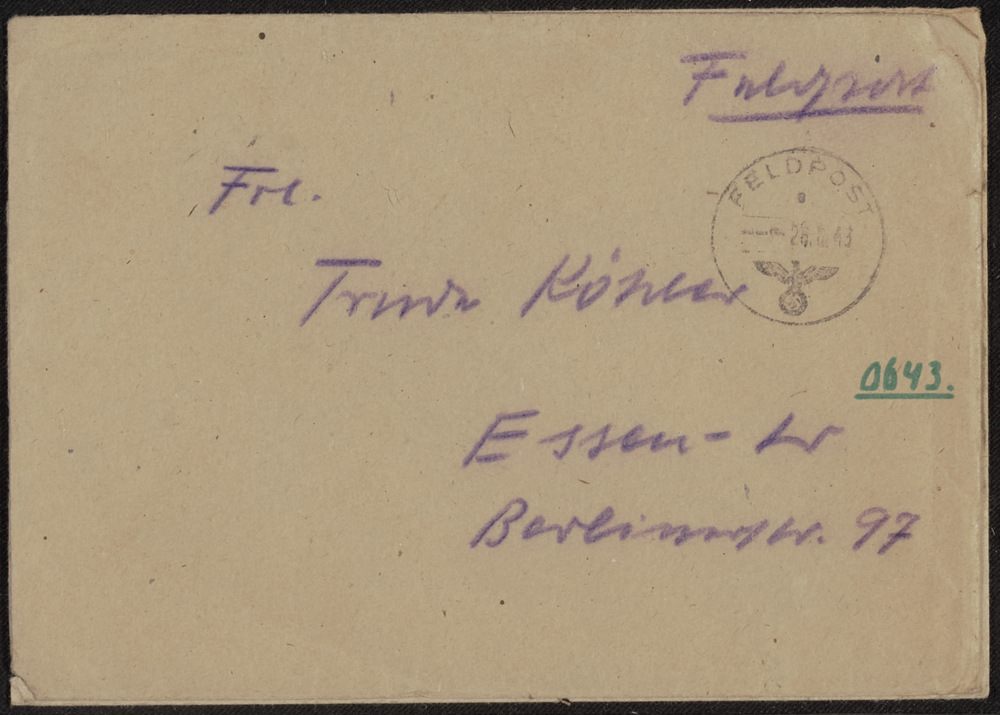 Feldpost
Frl.
FELDPOST
a
26. 43
Trude Köhler
0643.
Essen-
Berlinerstr. 97